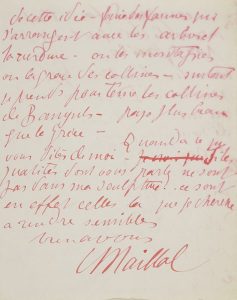 de cette idée – 
s'arrangent avec les arbres et
la verdure – ou les montagnes
ou la grace des collines – surtout
je pense pour cela les collines
de Banyuls – pays plus beau
que la Grèce –
Quand à ce que
vous dites de moi – les
qualités dont vous parlez ne sont
pas dans ma sculpture. ce sont
en effet celles la que je cherche
a rendre sensibles
bien a vous
Maillol